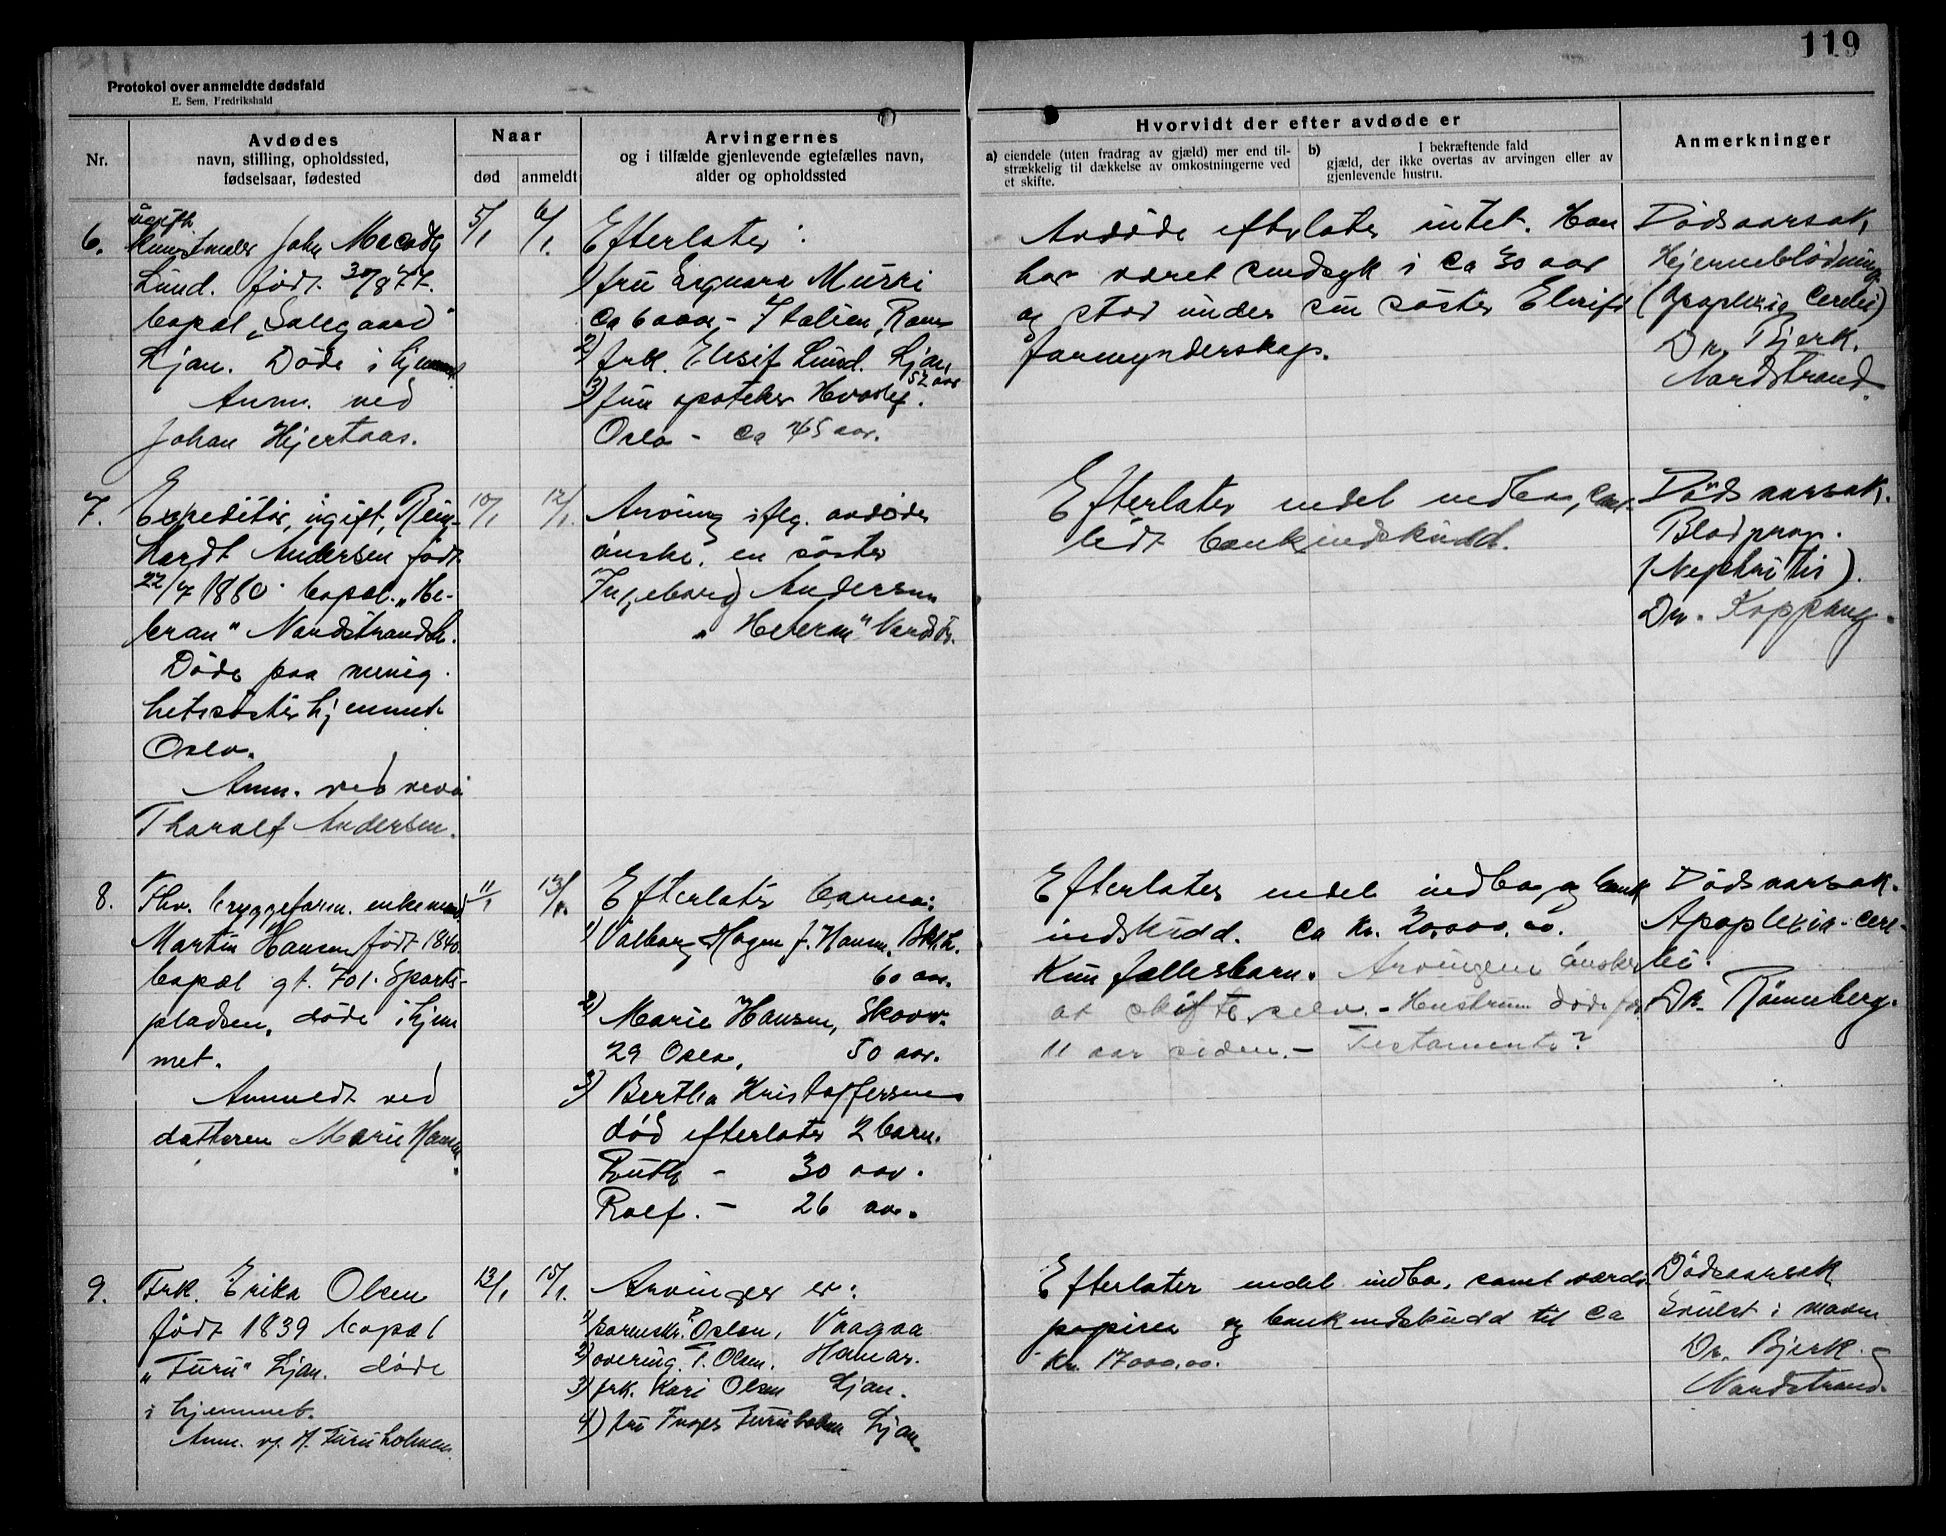 119
Protokol over anmeldte dødsfald
E. Sem, Fredrikshald
Nr.
Avdødes
navn, stilling, opholdssted,
fødselsaar, fødested
Naar
død
anmeldt
Arvingernes
og i tilfælde gjenlevende egtefælles navn,
alder og opholdssted
Hvorvidt der efter avdøde er
a) eiendele (uten fradrag av gjæld) mer end til-
strækkelig til dækkelse av omkostningerne ved
et skifte.
b) I bekræftende fald
gjæld, der ikke overtas av arvingen eller av
gjenlevende hustru.
Anmerkninger
6.
ugift
Kunstmaler John Macody
Lund. født 30/
bopæl „Solegaard"
Ljan. Døde i hjemmet
Anm. ved
Johan Hjertaas.
5/1
6/1.
Efterlater:
1) fru Murri
ca 60 aar, - Italien, Rom
2) frk. Elisif Lund. Ljan,
52 aar
3) fru apoteker
Oslo - ca 45 aar.
Avdøde efterlater intet. Han
har været sindsyk i ca 30 aar
og stod under sin søster Elisifs
formynderskap.
Dødsaarsak,
Hjerneblødning
(Apoplexia Cerebri)
Dr. Bjerk.
Nordstrand.
7.
Expeditør, ugift, Rein-
hardt Andersen født
22/7 1860. bopæl. „He-
bran" Nordstrandsh.
Døde paa menig-
hetssøsterhjemmet
Oslo.
Anm. ved nevø
Tharalf Andersen.
10/1
12/1.
Arving iflg. avdødes
ønske, en søster
Ingeborg Andersen
„Hebran" Nordstr.
Efterlater endel indbo, samt
lidt bankindskudd.
Dødsaarsak.
Blodprop.
(Nephritis).
Dr. Koppang.
8.
Fhv. bryggeform. enkemand
Martin Hansen født 1840.
bopæl gt. 701. Sports-
pladsen, døde i hjem
met.
Anmeldt ved
datteren Marie Hansen.
11/1
13/1.
Efterlater barna:
1) Valborg Hagen f. Hansen,
60 aar.
2) Marie Hansen, Skovv.
29 Oslo, 50 aar.
3) Bertha Kristoffersen
død efterlater 2 barn.
Ruth - 30 aar.
Rolf. - 26 aar.
Efterlater endel indbo, og bank
indskudd. ca kr. 20.000.00.
Kun fællesbarn. Arvingene ønsker
at skifte selv. - Hustruen døde for
11 aar siden. - Testamente?
Dødsaarsak.
Apoplexia. cere-
bri.
Dr. Rønneberg.
9.
Frk. Erika Olsen
født 1839 bopæl
„Furu" Ljan. døde
i hjemmet.
Anm. v. H. Furuholmen
13/1
15/1.
Arvinger er:
1) Olsen, Vaagaa
2) overing. T. Olsen. Hamar.
3) frk. Kari Olsen Ljan.
4) fru Inger Furuholmen Ljan.
Efterlater endel indbo, samt værdi
papirer og bankindskudd til ca
kr. 17000.00.
Dødsaarsak
Svulst i maven
Dr. Bjerk.
Nordstrand.